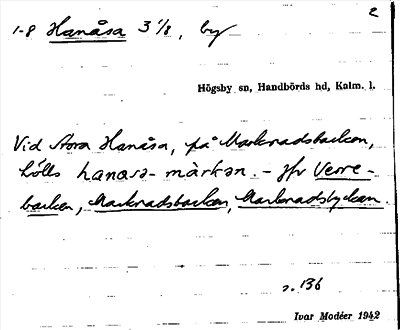 2
1-8 Hanåsa 3 1/8, by
Högsby sn, Handbörds hd, Kalm. l.
Vid Stora Hanåsa, på Marknadsbacken,
hölls hanasə- màrkən. - Jfr Verre-
backen, Marknadsbacken, Marknadslyckan.
s. 136
Ivar Modéer 1942